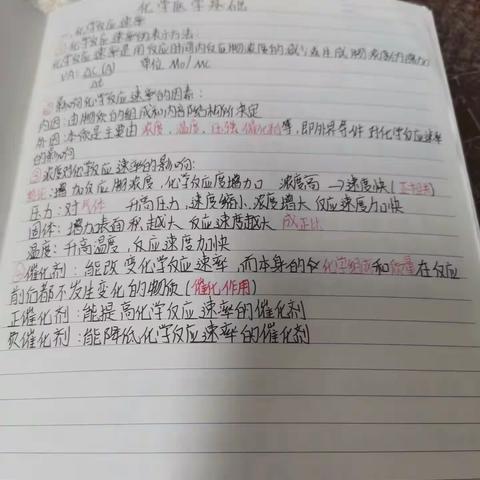 化学医学基础
一、化学反应速率
化学反应速率的表示方法:
化学反应速率是用反应时间内反应物浓度的减少或生成物浓度的增加
VA=ΔC(A)/Δt 单位
②影响化学反应速率的因素:
内因:由物质的组成和内部结构所决定
外因:本质是主要由浓度,温度,压强,催化剂等,即外界条件对化学反应速率
的影响
③浓度对化学反应速率的影响:
增加反应物浓度,化学反应速度增加 浓度高→速度快(正比)
压力:对气体 升高压力,速度缩小,浓度增大反应速度加快
固体:增加表面积越大反应速度越大 成正比
温度:升高温度,反应速度加快
催化剂:能改变化学反应速率,而本身的化学组成和质量在反应
前后都不发生变化的物质(催化作用)
正催化剂:能提高化学反应速率的催化剂
负催化剂:能降低化学反应速率的催化剂